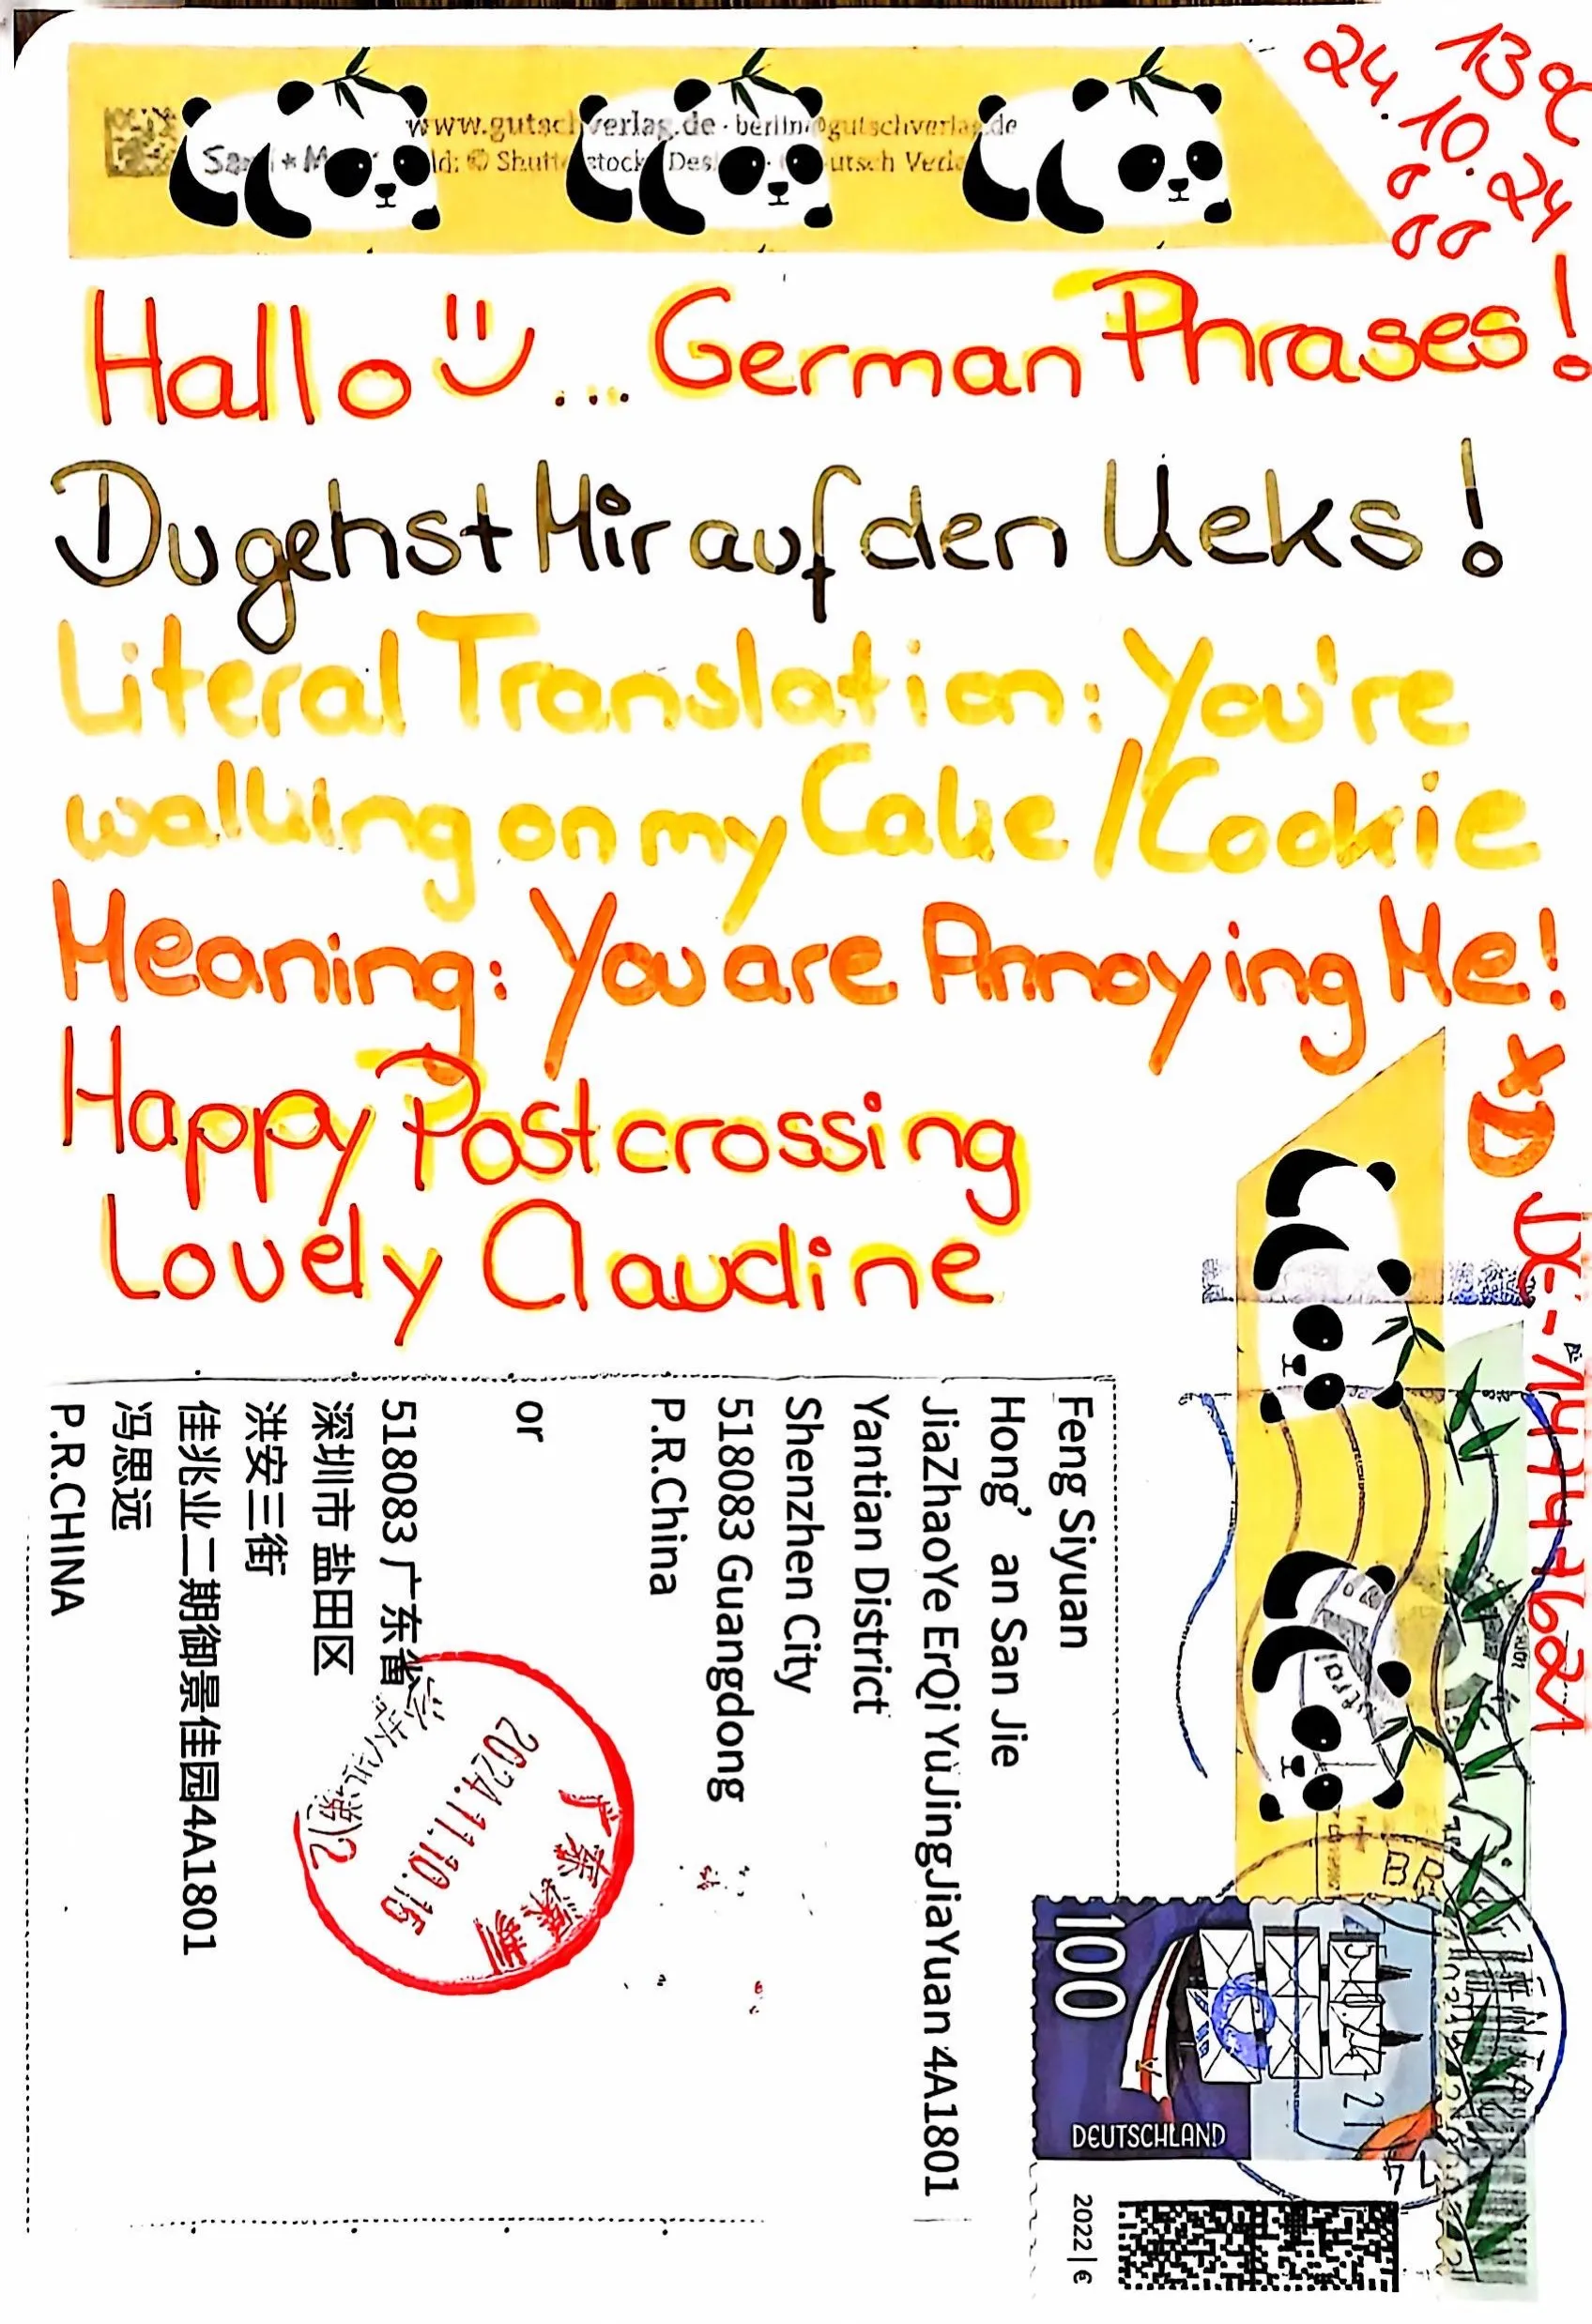 www.gutschverlag.de · berlin@gutschverlag.de
13°C
24.10.24
Hallo ... German Phrases!
Du gehst Mir auf den Keks!
Literal Translation: You're
walking on my Cake / Cookie
Meaning: You are Annoying Me!
XD
Happy Postcrossing
Lovely Claudine
DE-14147621
Feng Siyuan
Hong' an San Jie
JiaZhaoYe ErQi YuJingJiaYuan 4A1801
Yantian District
Shenzhen City
518083 Guangdong
P.R.China
or
518083 广东省
深圳市 盐田区
洪安三街
佳兆业二期御景佳园4A1801
冯思远
P.R.CHINA
广东深圳
2024.11.10.15
100
DEUTSCHLAND
2022 | €